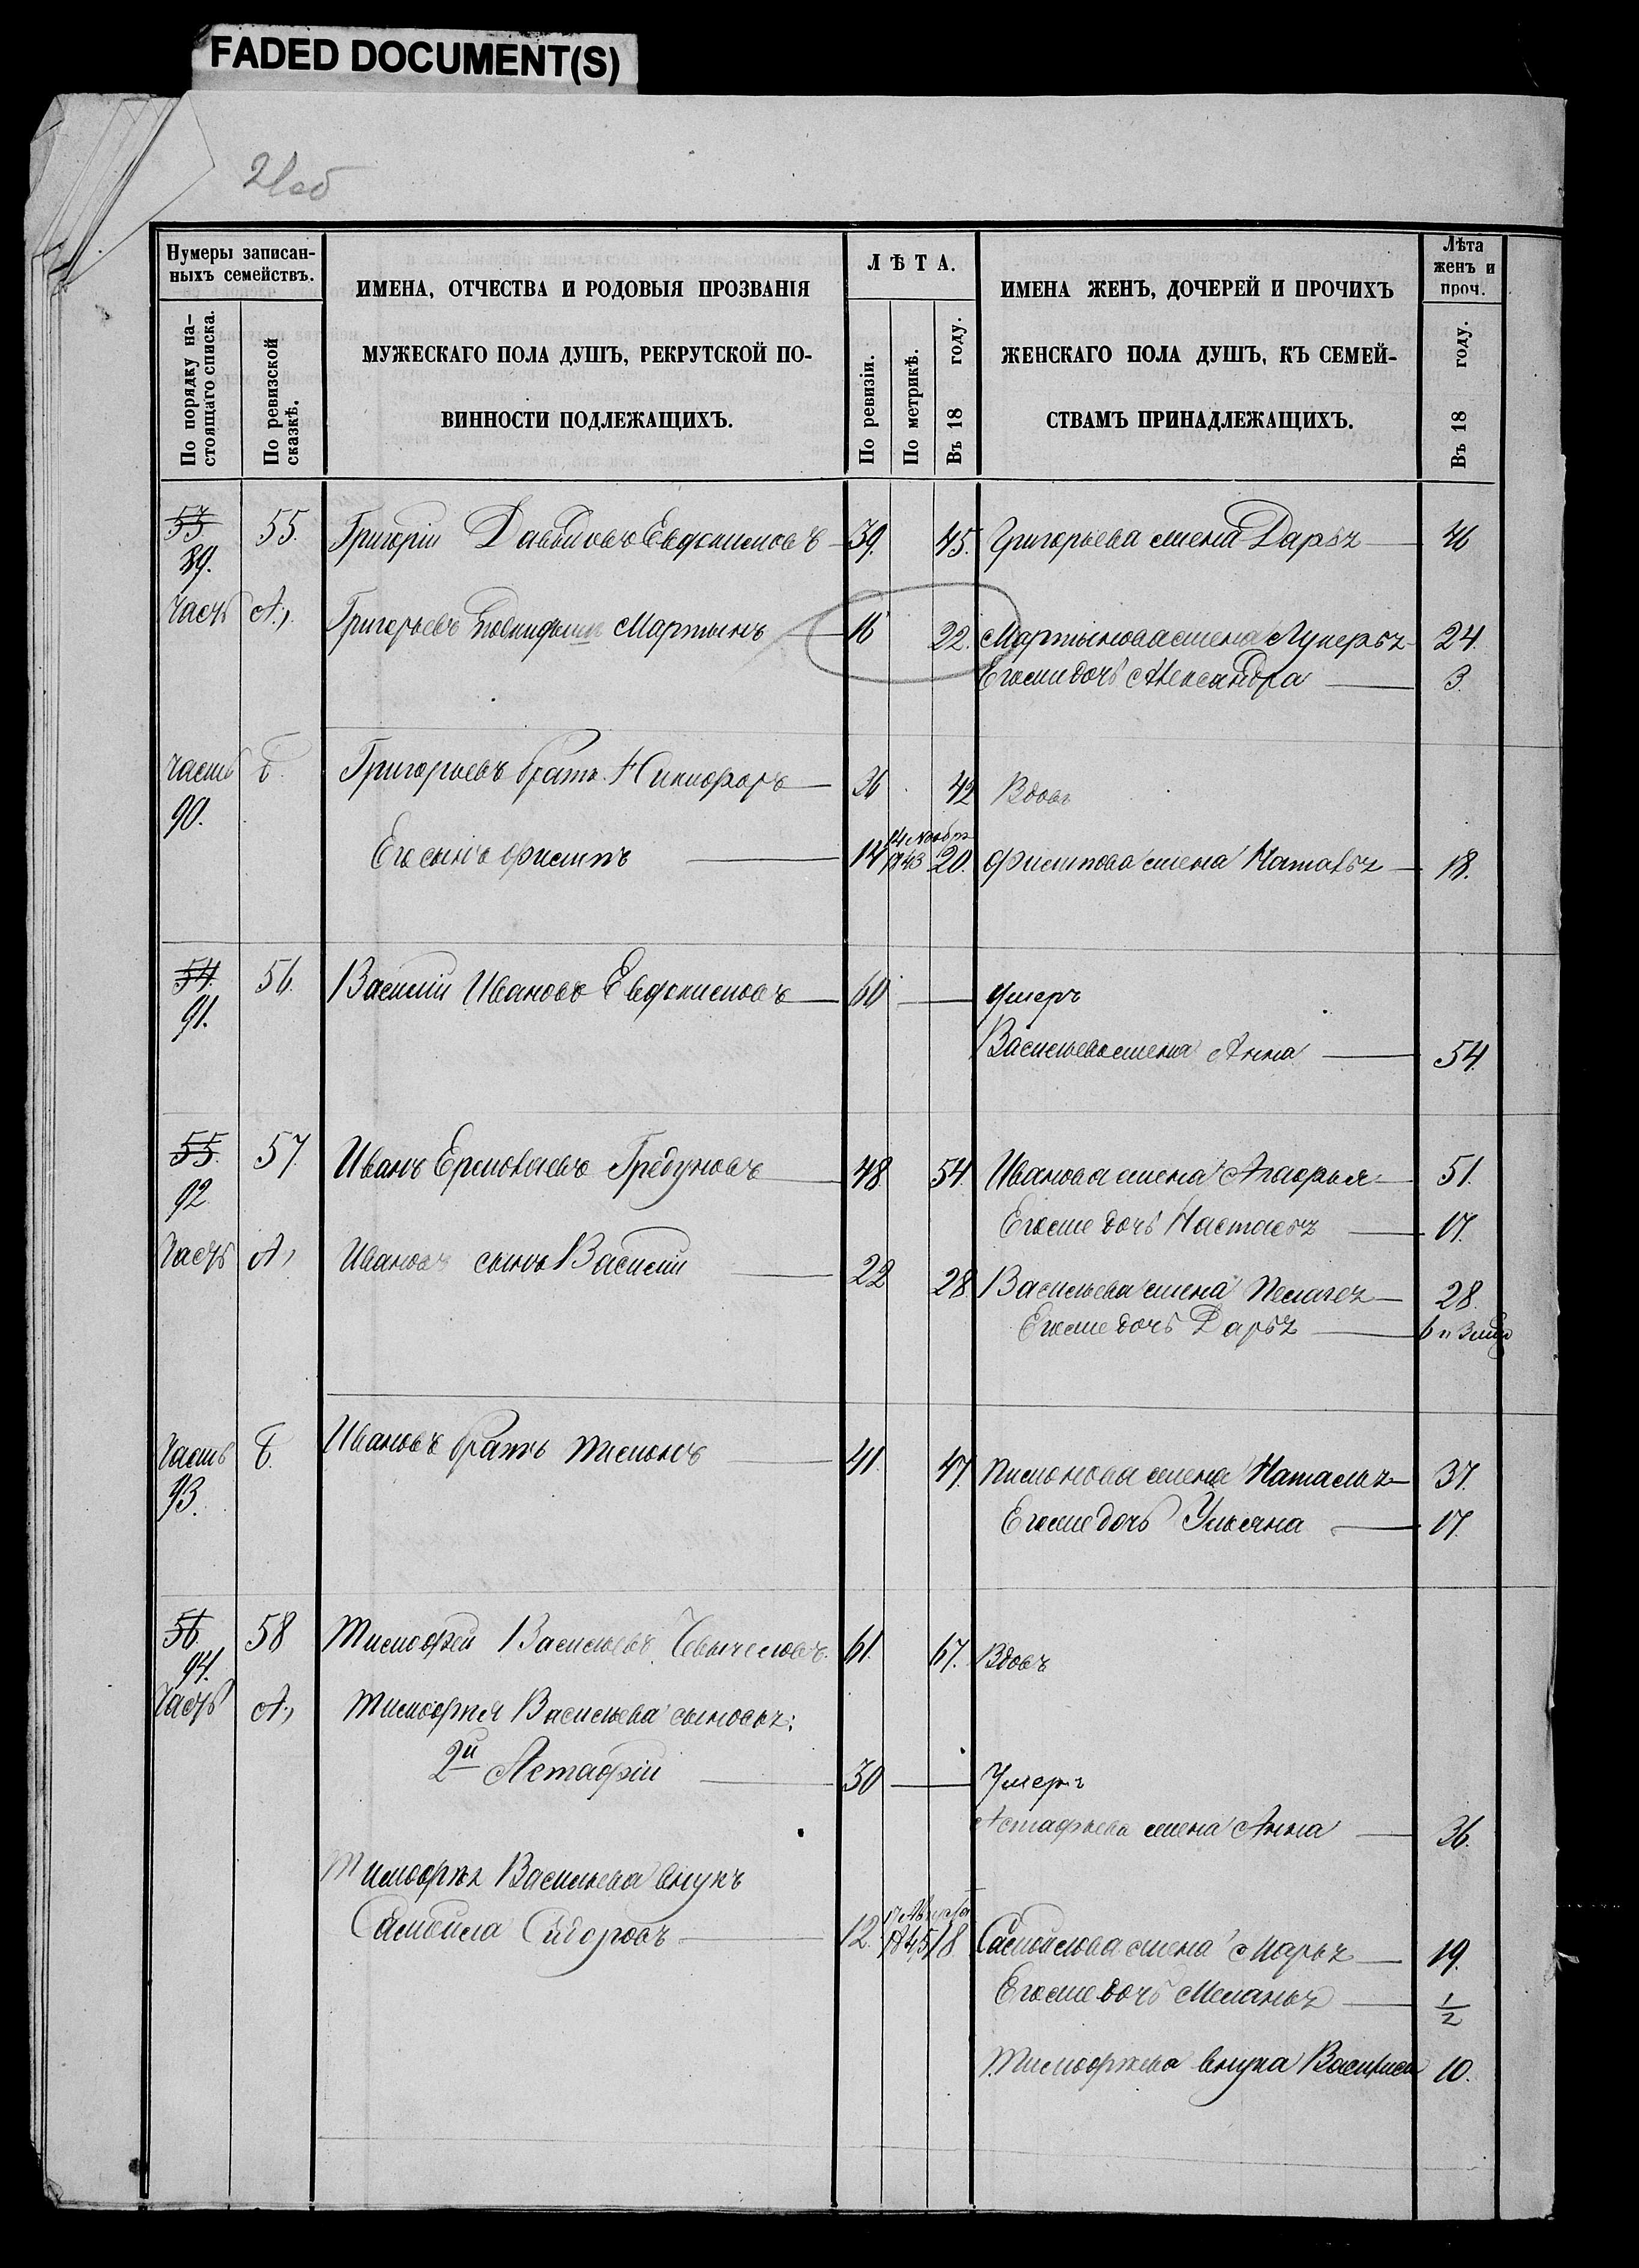 FADED DOCUMENT(S)
21об
Нумеры записан-
ныхъ семействъ.
По порядку на-
стоящаго списка.
По ревизской
сказкѣ.
ИМЕНА, ОТЧЕСТВА И РОДОВЫЯ ПРОЗВАНІЯ
МУЖЕСКАГО ПОЛА ДУШЪ, РЕКРУТСКОЙ ПО-
ВИННОСТИ ПОДЛЕЖАЩИХЪ.
ЛѢТА.
По ревизіи.
По метрикѣ.
Въ 18 году.
ИМЕНА ЖЕНЪ, ДОЧЕРЕЙ И ПРОЧИХЪ
ЖЕНСКАГО ПОЛА ДУШЪ, КЪ СЕМЕЙ-
СТВАМЪ ПРИНАДЛЕЖАЩИХЪ.
Лѣта
женъ и
проч.
Въ 18 году.
53 55. Григорій Давыдовъ Евдокимовъ 39. 45. Григорьева жена Дарья 46
89.
Часть А, Григорьевъ Мартынъ 16 22. Мартынова жена Лукерья 24.
Его же дочь Александра 3.
Часть Б. Григорьевъ братъ Никифоръ 36 42 Вдовъ
90.
Его сынъ Филипъ 14 14 Ноября 1843 20. Филипова жена Наталья 18.
54. 56. Василій Ивановъ Евдокимовъ 60 Умеръ
91.
Васильева жена Анна 54.
55. 57. Иванъ Ермолаевъ Гредуновъ 48 54 Иванова жена Агафья 51.
92
Его же дочь Настасья 17.
Часть А, Ивановъ сынъ Василій 22 28 Васильева жена Пелагея 28.
Его же дочь Дарья 6 и 3 мѣ
Часть Б. Ивановъ братъ Пимонъ 41. 47. Пимонова жена Наталья 37.
93.
Его же дочь Ульяна 17.
56. 58 Тимофей Васильевъ 61. 67. Вдовъ
94.
Часть А, Тимофея Васильева сыновья:
2й Астафій 30 Умеръ
Астафьева жена Анна 36.
Тимофея Васильева внукъ
Самойла Сидоровъ 12. 17 Августа 1845 18 Самойлова жена Марья 19.
Его же дочь Меланья 1/2
Тимофеева внука Василиса 10.